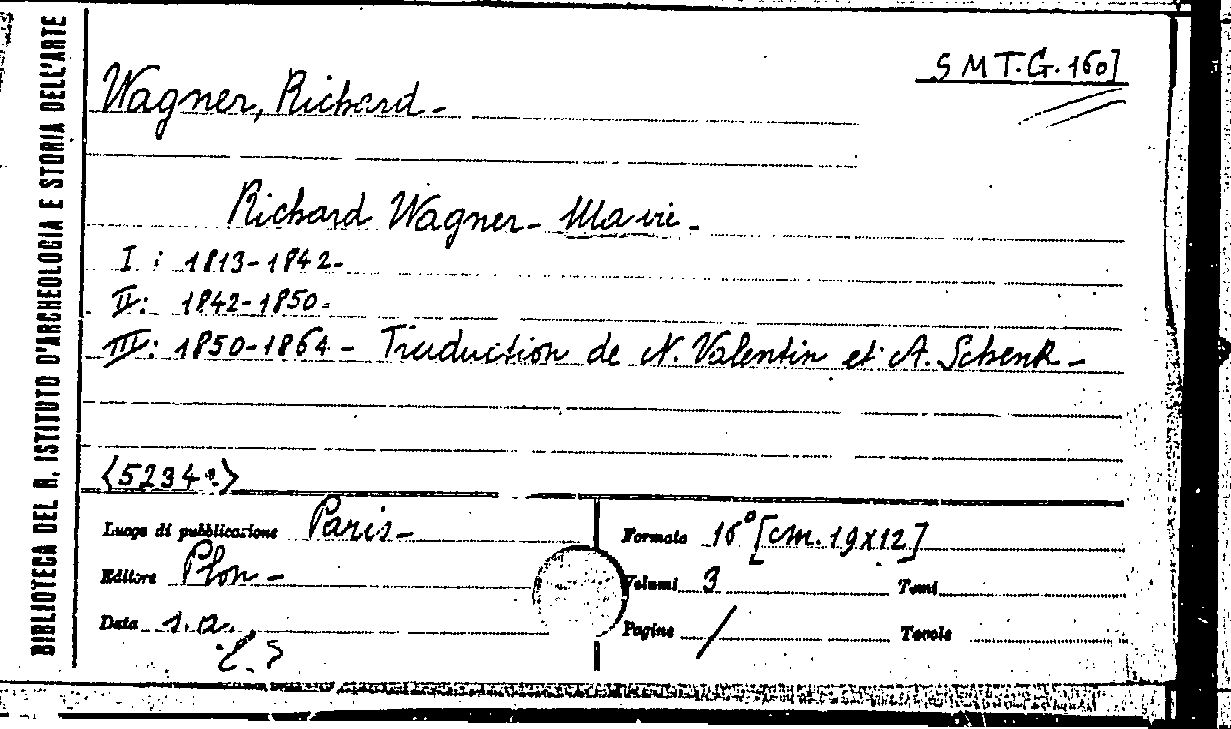 BIBLIOTECA DEL R. ISTITUTO D'ARCHEOLOGIA E STORIA DELL'ARTE
S M T.G. 160]
Wagner, Richard -
Richard Wagner - Ma vie -
I : 1813-1842-
II: 1842-1850-
III: 1850-1864 - Traduction de N. Valentin et A. Schenk -
Luogo di pubblicazione Paris -
Formato 16° [cm. 19x12]
Editore Plon -
Volumi 3 Tomi
Data s.a.
Pagine / Tavole